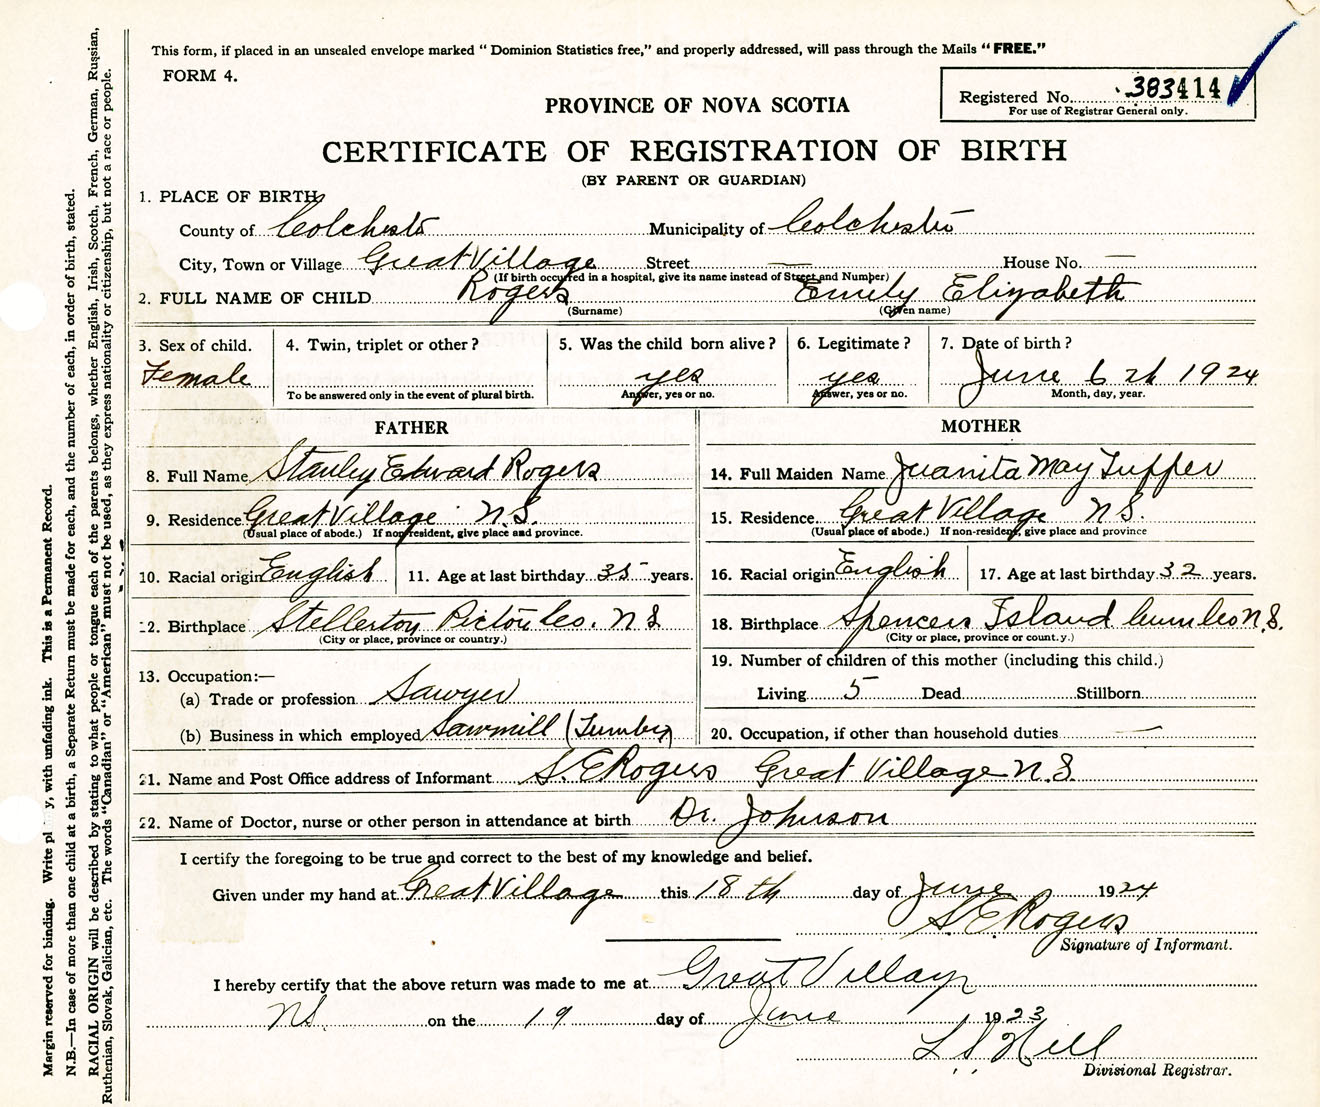 This form, if placed in an unsealed envelope marked "Dominion Statistics free," and properly addressed, will pass through the Mails "FREE."
FORM 4.
Registered No. 383414
For use of Registrar General only.
PROVINCE OF NOVA SCOTIA
CERTIFICATE OF REGISTRATION OF BIRTH
(BY PARENT OR GUARDIAN)
1. PLACE OF BIRTH
County of Colchester Municipality of Colchester
City, Town or Village Great Village Street — House No. —
(If birth occurred in a hospital, give its name instead of Street and Number)
2. FULL NAME OF CHILD Rogers Emily Elizabeth
(Surname) (Given name)
3. Sex of child. 4. Twin, triplet or other? 5. Was the child born alive? 6. Legitimate? 7. Date of birth?
Female yes yes June 6th 1924
To be answered only in the event of plural birth. Answer, yes or no. Answer, yes or no. Month, day, year.
FATHER MOTHER
8. Full Name Stanley Edward Rogers 14. Full Maiden Name Juanita May Tupper
9. Residence Great Village N.S. 15. Residence Great Village N.S.
(Usual place of abode.) If non-resident, give place and province. (Usual place of abode.) If non-resident, give place and province
10. Racial origin English 11. Age at last birthday 35 years. 16. Racial origin English 17. Age at last birthday 32 years.
12. Birthplace Stellerton Pictou Co. N S 18. Birthplace Spencers Island Cum Co N.S.
(City or place, province or country.) (City or place, province or count.y.)
13. Occupation:— 19. Number of children of this mother (including this child.)
(a) Trade or profession Sawyer Living 5 Dead Stillborn
(b) Business in which employed Sawmill (Lumber) 20. Occupation, if other than household duties —
21. Name and Post Office address of Informant S. E Rogers Great Village N.S.
22. Name of Doctor, nurse or other person in attendance at birth Dr. Johnson
I certify the foregoing to be true and correct to the best of my knowledge and belief.
Given under my hand at Great Village this 18th day of June 1924
S. E Rogers
Signature of Informant.
I hereby certify that the above return was made to me at Great Village
N.S. on the 19 day of June 1923
L S Hill
Divisional Registrar.
Margin reserved for binding. Write pl y, with unfading ink. This is a Permanent Record.
N.B.—In case of more than one child at a birth, a Separate Return must be made for each, and the number of each, in order of birth, stated.
RACIAL ORIGIN will be described by stating to what people or tongue each of the parents belongs, whether English, Irish, Scotch, French, German, Russian,
Ruthenian, Slovak, Galician, etc. The words "Canadian" or "American" must not be used, as they express nationality or citizenship, but not a race or people.